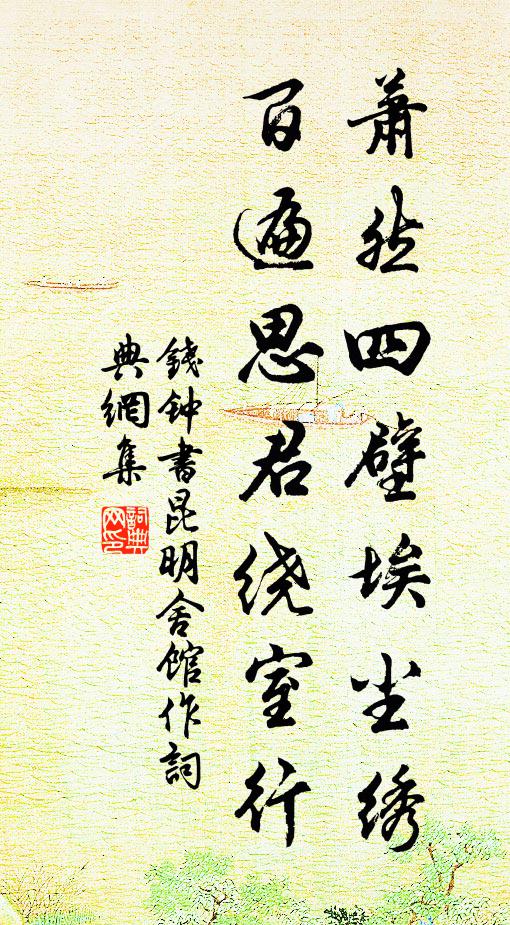 萧然四壁埃尘绣
百遍思君绕室行
錢钟書昆明舍馆作詞
典網集
詞典网印